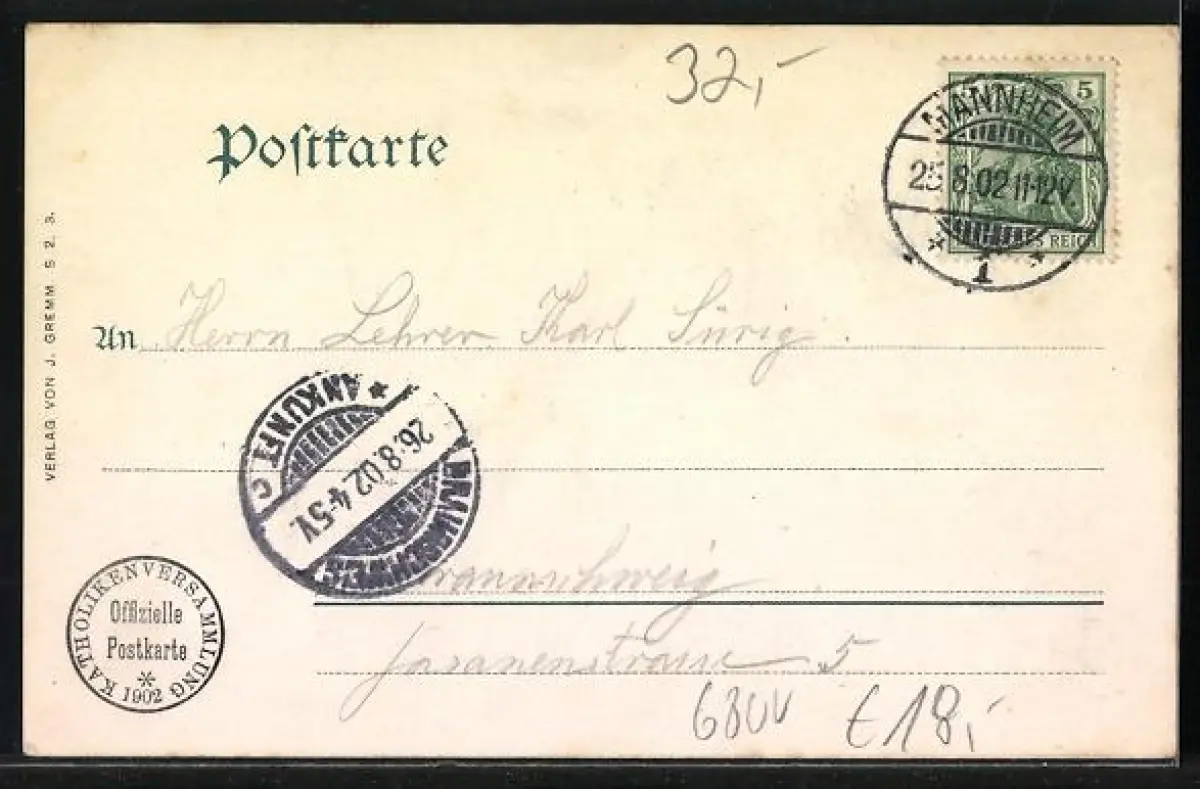 32,-
Postkarte
5
MANNHEIM
25.8.02 11-12V.
* 1 *
REICH
VERLAG VON J. GREMM. S 2, 3.
An Herrn Lehrer Karl Sürig.
* ANKUNFT C
26.8.02 4-5V.
BRAUNSCHWEIG
Braunschweig
Fasanenstrasse 5
KATHOLIKENVERSAMMLUNG
Offizielle
Postkarte
*
1902
€18,-